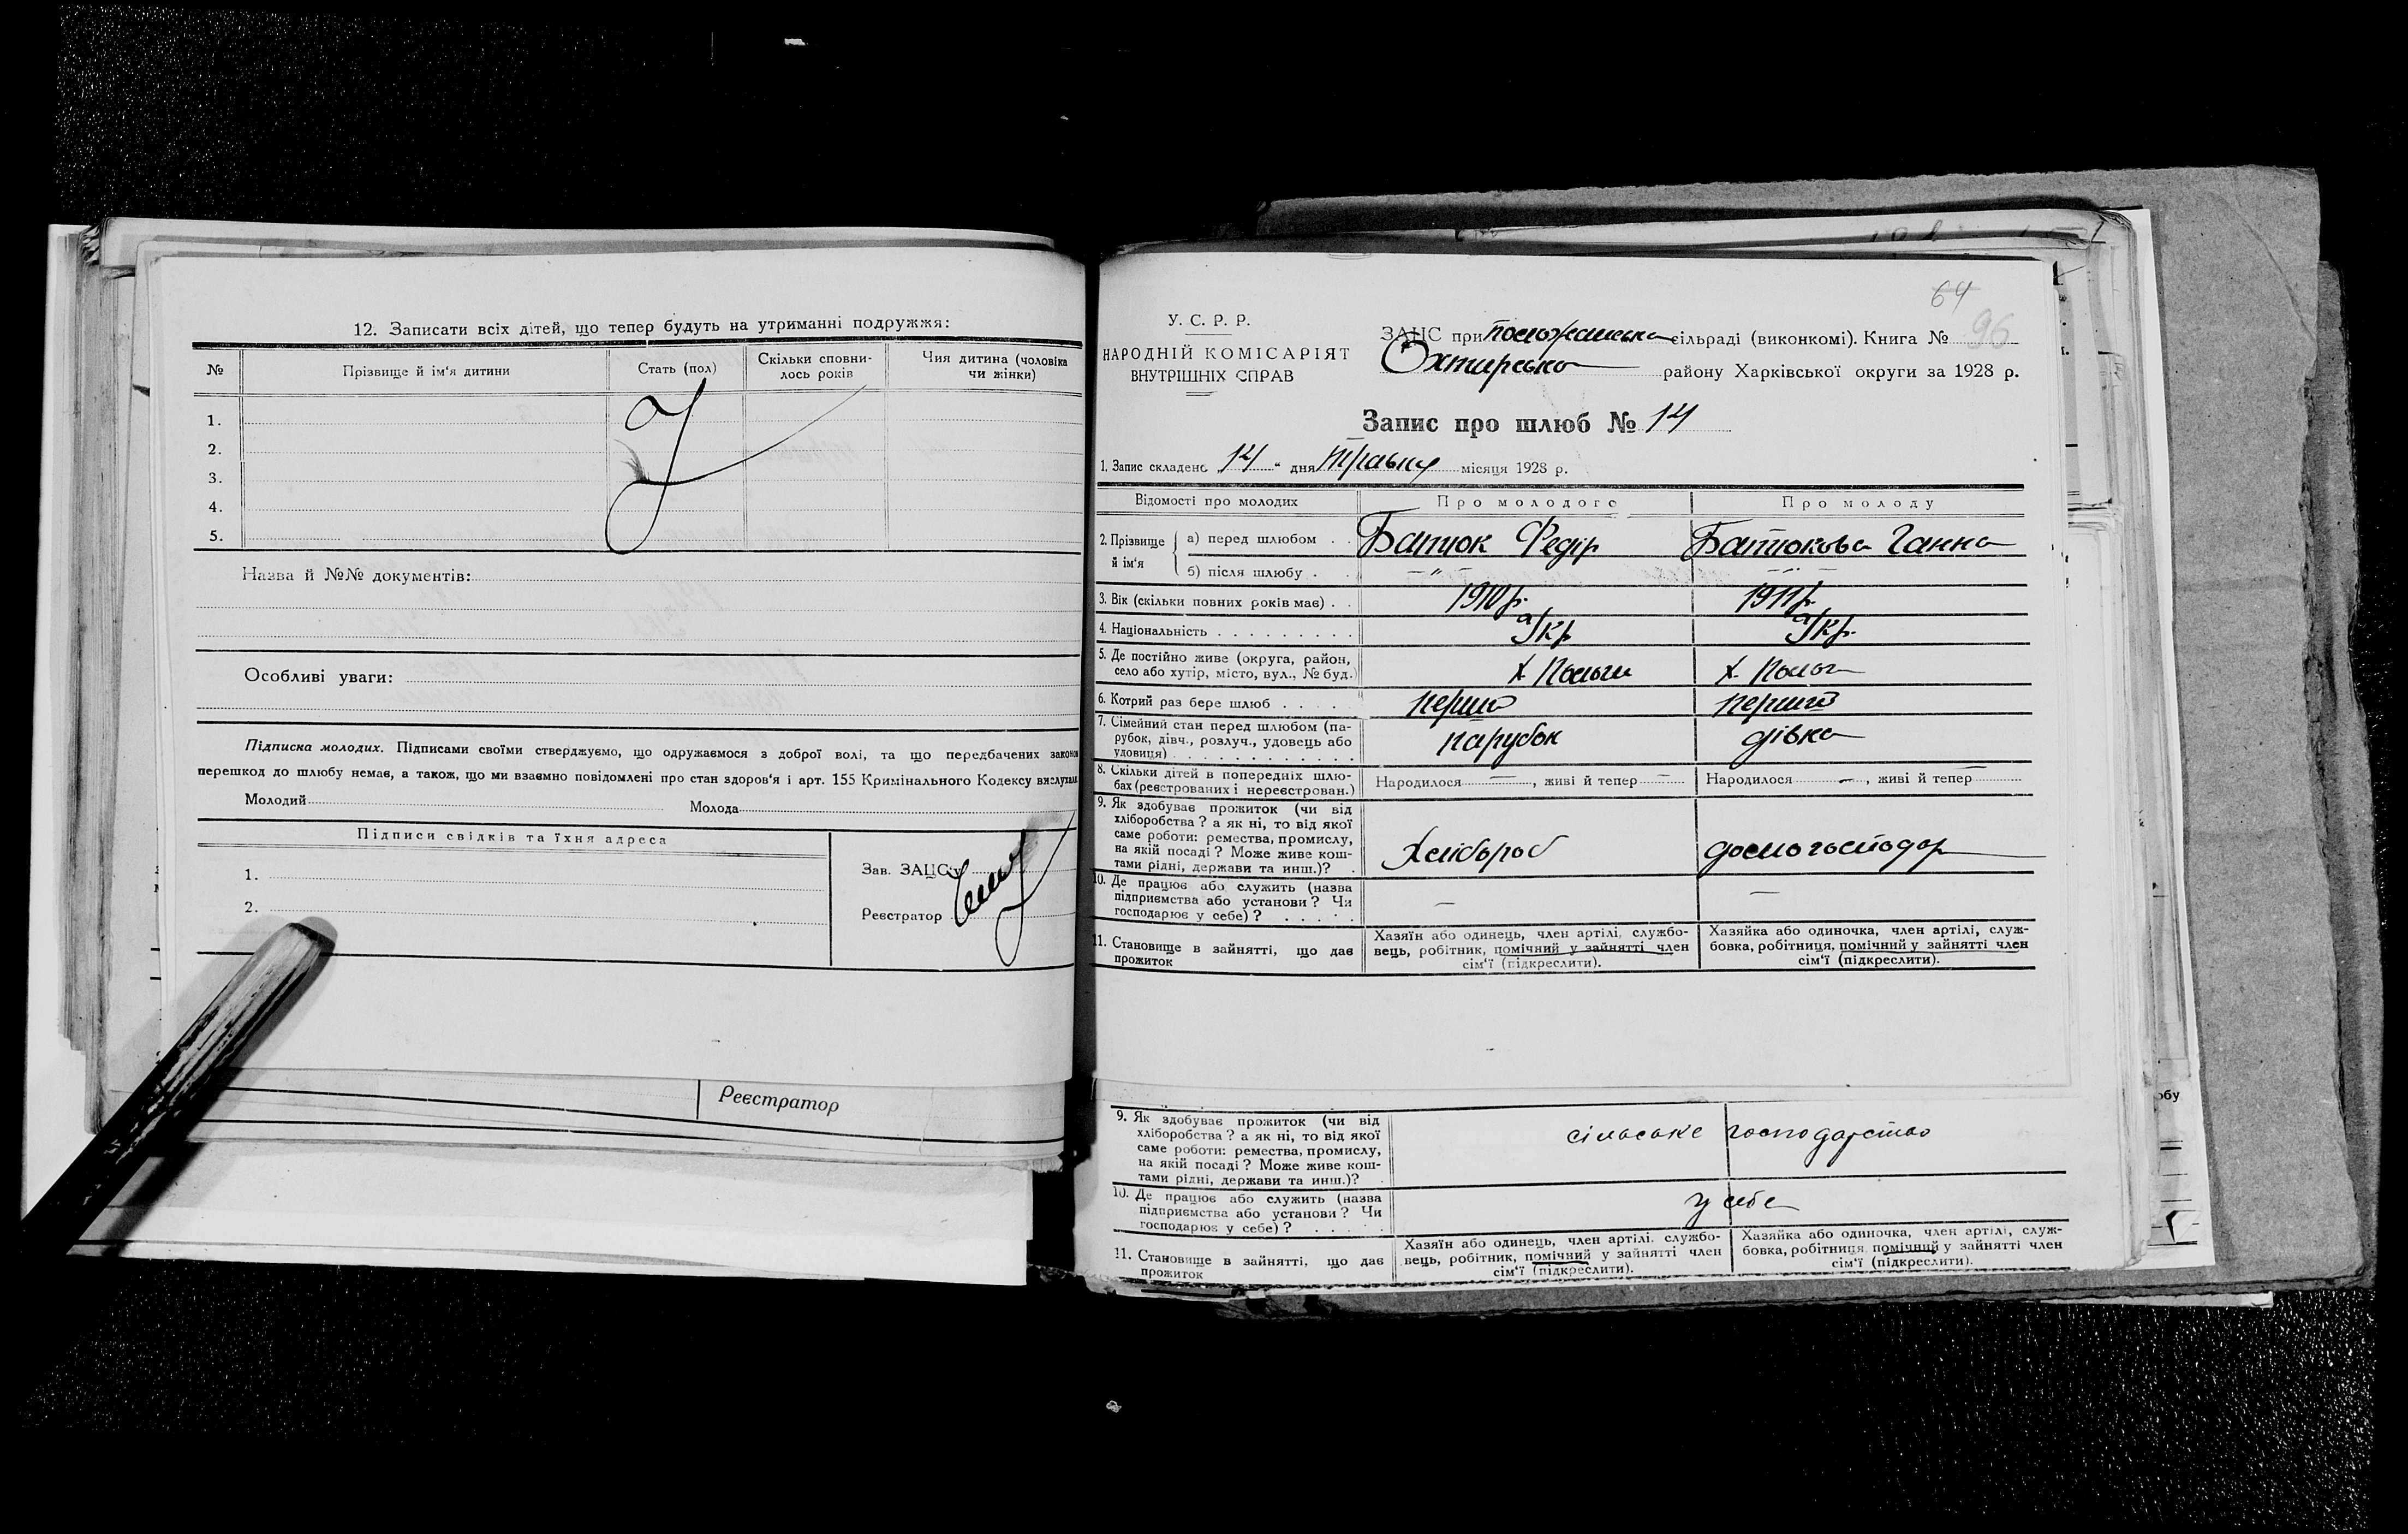 12. Записати всіх дітей, що тепер будуть на утриманні подружжя:
№ Прізвище й ім'я дитини Стать (пол) Скільки сповни-
лось років Чия дитина (чоловіка
чи жінки)
1.
2.
3.
4.
5.
Назва й №№ документів:
Особливі уваги:
Підписка молодих. Підписами своїми стверджуємо, що одружаємося з доброї волі, та що передбачених законом
перешкод до шлюбу немає, а також, що ми взаємно повідомлені про стан здоров'я і арт. 155 Кримінального Кодексу вислухали
Молодий Молода
Підписи свідків та їхня адреса
1.
2.
Зав. ЗАЦСу
Реєстратор
Реєстратор
64
96
У. С. Р. Р.
НАРОДНІЙ КОМІСАРІЯТ
ВНУТРІШНІХ СПРАВ
ЗАЦС при сільраді (виконкомі). Книга №
Охтирсько району Харківської округи за 1928 р.
Запис про шлюб № 14
1. Запис складено „14“ дня Травня місяця 1928 р.
Відомості про молодих Про молодого Про молоду
2. Прізвище й ім'я а) перед шлюбом . . Батюк Федір Батюкова Ганна
б) після шлюбу . . — " — — " —
3. Вік (скільки повних років має) . . 1910 р. 1911 р.
4. Національність . . . . . . . . . Укр Укр.
5. Де постійно живе (округа, район,
село або хутір, місто, вул., № буд.) х.  х.
6. Котрий раз бере шлюб . . . . . перший перший
7. Сімейний стан перед шлюбом (па-
рубок, дівч., розлуч., удовець або
удовиця) . . . . . . . . . . . . парубок дівка
8. Скільки дітей в попередніх шлю-
бах (реєстрованих і нереєстрован.) Народилося — , живі й тепер — Народилося — , живі й тепер —
9. Як здобуває прожиток (чи від
хліборобства? а як ні, то від якої
саме роботи: ремества, промислу,
на якій посаді? Може живе кош-
тами рідні, держави та инш.)? . Хлібороб домогосподар
10. Де працює або служить (назва
підприємства або установи? Чи
господарює у себе)? . . . . . — —
11. Становище в зайнятті, що дає
прожиток
Хазяїн або одинець, член артілі, службо-
вець, робітник, помічний у зайнятті член
сім'ї (підкреслити).
Хазяйка або одиночка, член артілі, служ-
бовка, робітниця, помічний у зайнятті член
сім'ї (підкреслити).
9. Як здобуває прожиток (чи від
хліборобства? а як ні, то від якої
саме роботи: ремества, промислу,
на якій посаді? Може живе кош-
тами рідні, держави та инш.)? сільське господарство
10. Де працює або служить (назва
підприємства або установи? Чи
господарює у себе)? . . . . . у себе
11. Становище в зайнятті, що дає
прожиток
Хазяїн або одинець, член артілі, службо-
вець, робітник, помічний у зайнятті член
сім'ї (підкреслити).
Хазяйка або одиночка, член артілі, служ-
бовка, робітниця, помічний у зайнятті член
сім'ї (підкреслити).
обу